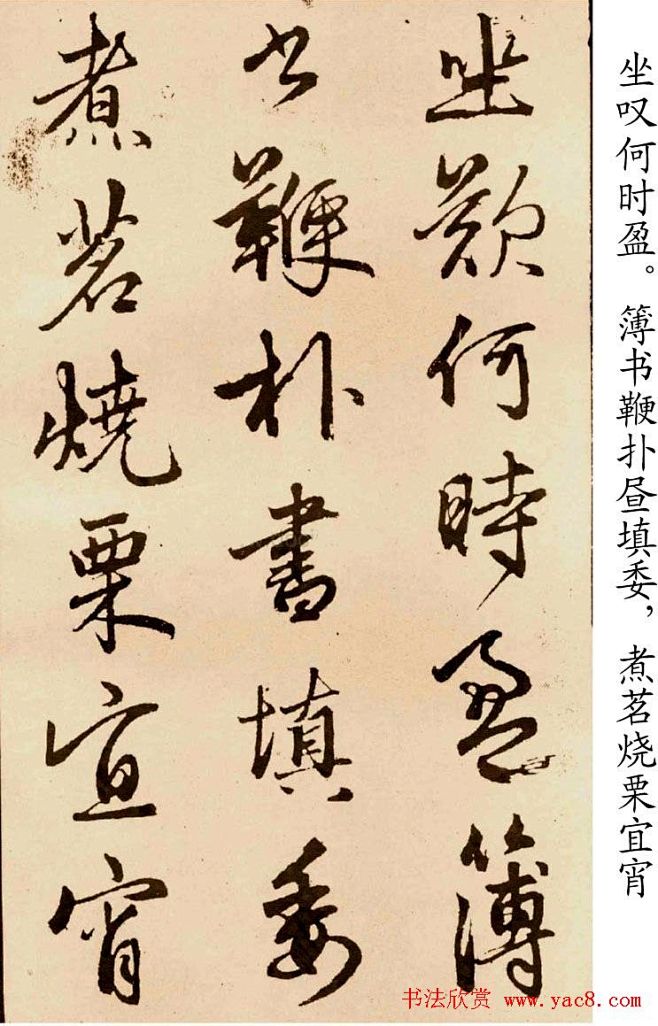 坐叹何时盈。簿书鞭扑昼填委，煮茗烧栗宜宵
坐歎何時盈簿
书鞭朴晝填委
煮茗燒栗宜宵
书法欣赏 www.yac8.com